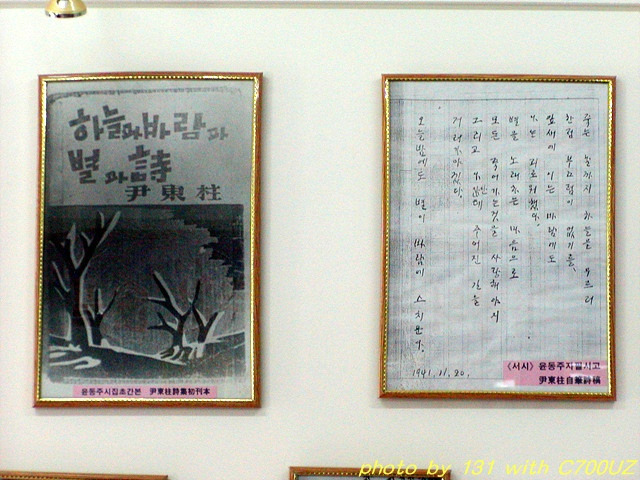 하늘과바람과
별과詩
尹東柱
윤동주시집초간본 尹東柱詩集初刊本
죽는 날까지 하늘을 우르러
한점 부끄럼이 없기를,
잎새에 이는 바람에도
나는 괴로워했다.
별을 노래하는 마음으로
모든 죽어가는것을 사랑해야지
그리고 나안테 주어진 길을
거러가야겠다.
오늘밤에도 별이 바람에 스치운다.
1941. 11. 20.
〈서시〉 윤동주자필시고
尹東柱自筆詩稿
photo by 131 with C700UZ